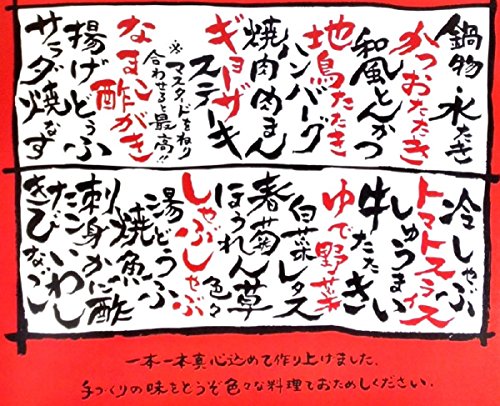 鍋物・水たき
かつおたたき
和風とんかつ
地鳥たたき
ハンバーグ
焼肉肉まん
ギョーザ
ステーキ
※マスタードをねり
合わせると最高!!
なまこ酢がき
揚げどうふ
サラダ焼なす
冷しゃぶ
トマトスライス
しゅうまい
牛たたき
ゆで野菜
白菜レタス
春菊
ほうれん草
色々
しゃぶしゃぶ
湯どうふ
焼魚
刺身かに酢
いわし
きびなご
一本一本真心込めて作り上げました。
手づくりの味をどうぞ色々な料理でおためしください。